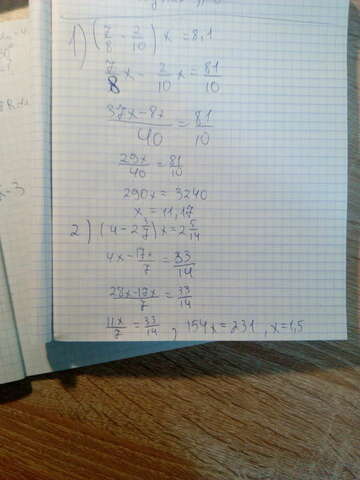 1) (7/8 - 2/10) x = 8,1
7/8 x - 2/10 x = 81/10
37x-8x/40 = 81/10
29x/40 = 81/10
290x = 3240
x = 11,17
2) (4 - 2 3/7) x = 2 5/14
4x - 17x/7 = 33/14
28x-17x/7 = 33/14
11x/7 = 33/14 , 154x = 231 , x = 1,5